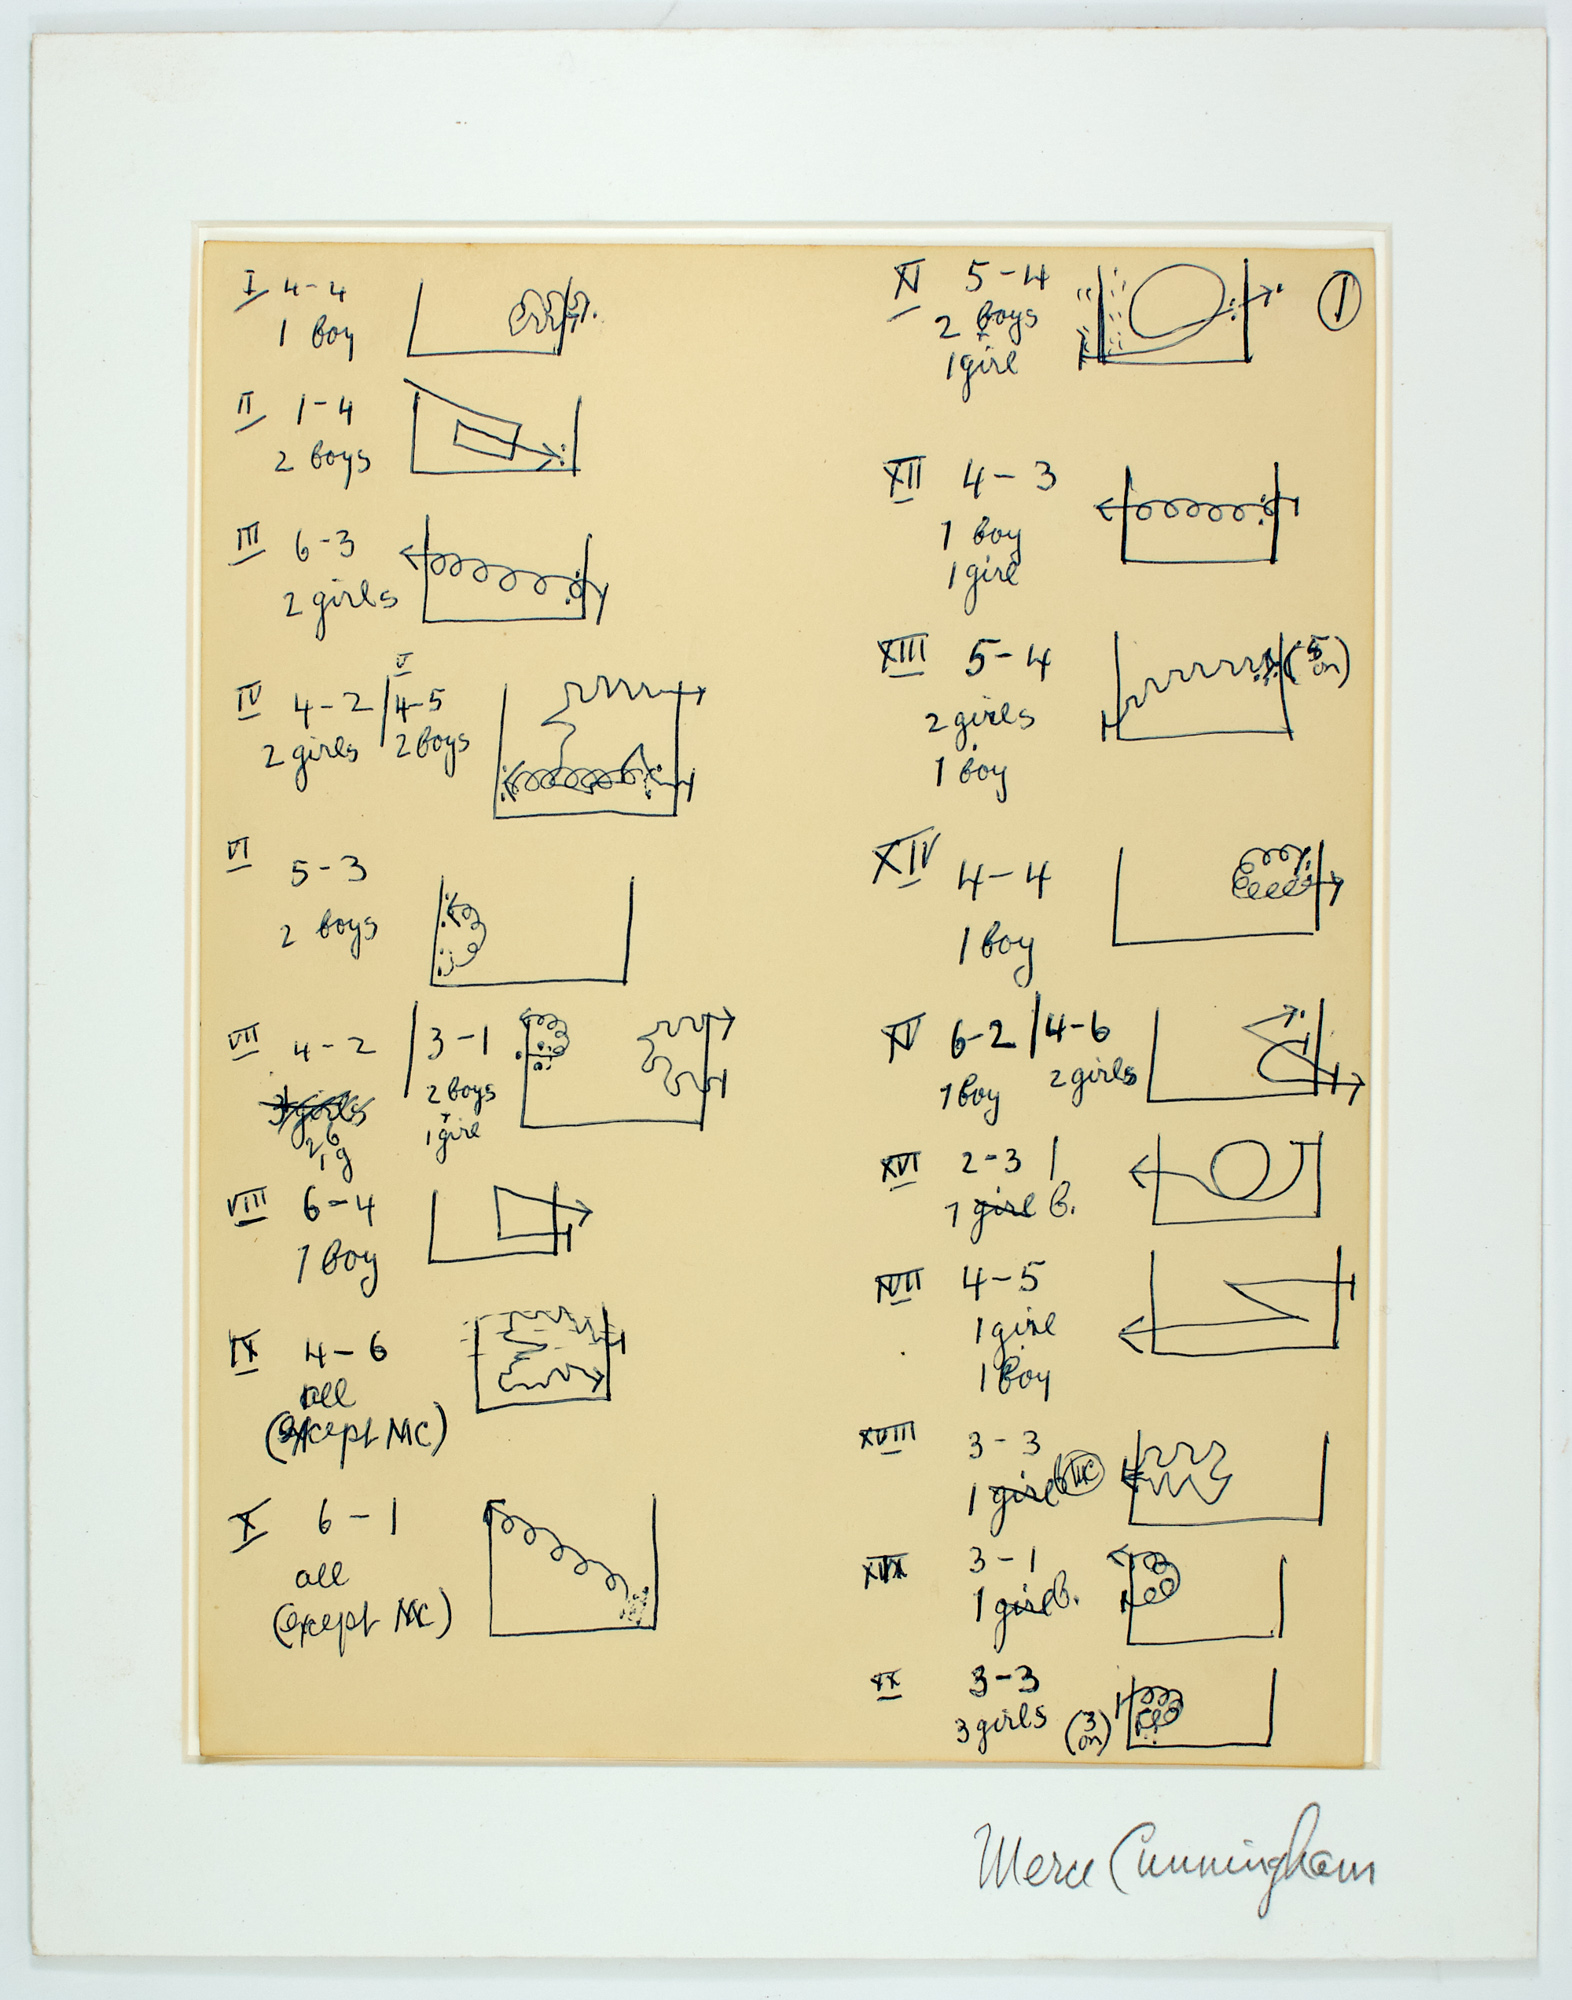 I 4-4
1 boy
II 1-4
2 boys
III 6-3
2 girls
V
IV 4-2 | 4-5
2 girls 2 boys
VI
5-3
2 boys
VII 4-2 | 3-1
3 girls 2 boys
2 b + 
1 g 1 girl
VIII 6-4
1 boy
IX 4-6
all
(except MC)
X 6-1
all
(except MC)
XI 5-4
2 boys
+
1 girl
1
XII 4-3
1 boy
1 girl
XIII 5-4 (5
on)
2 girls
1 boy
XIV 4-4
1 boy
XV 6-2 | 4-6
1 boy 2 girls
XVI 2-3 |
1 girl b.
XVII 4-5
1 girl
1 boy
XVIII 3-3
1 girl b MC
XIX 3-1
1 girl b.
XX 3-3
3 girls (3
on)
Merce Cunningham